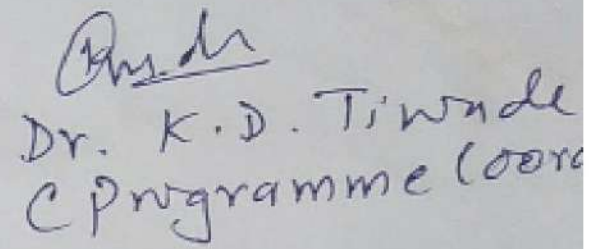 Dr. K.D. Tiwade
(Programme Coord